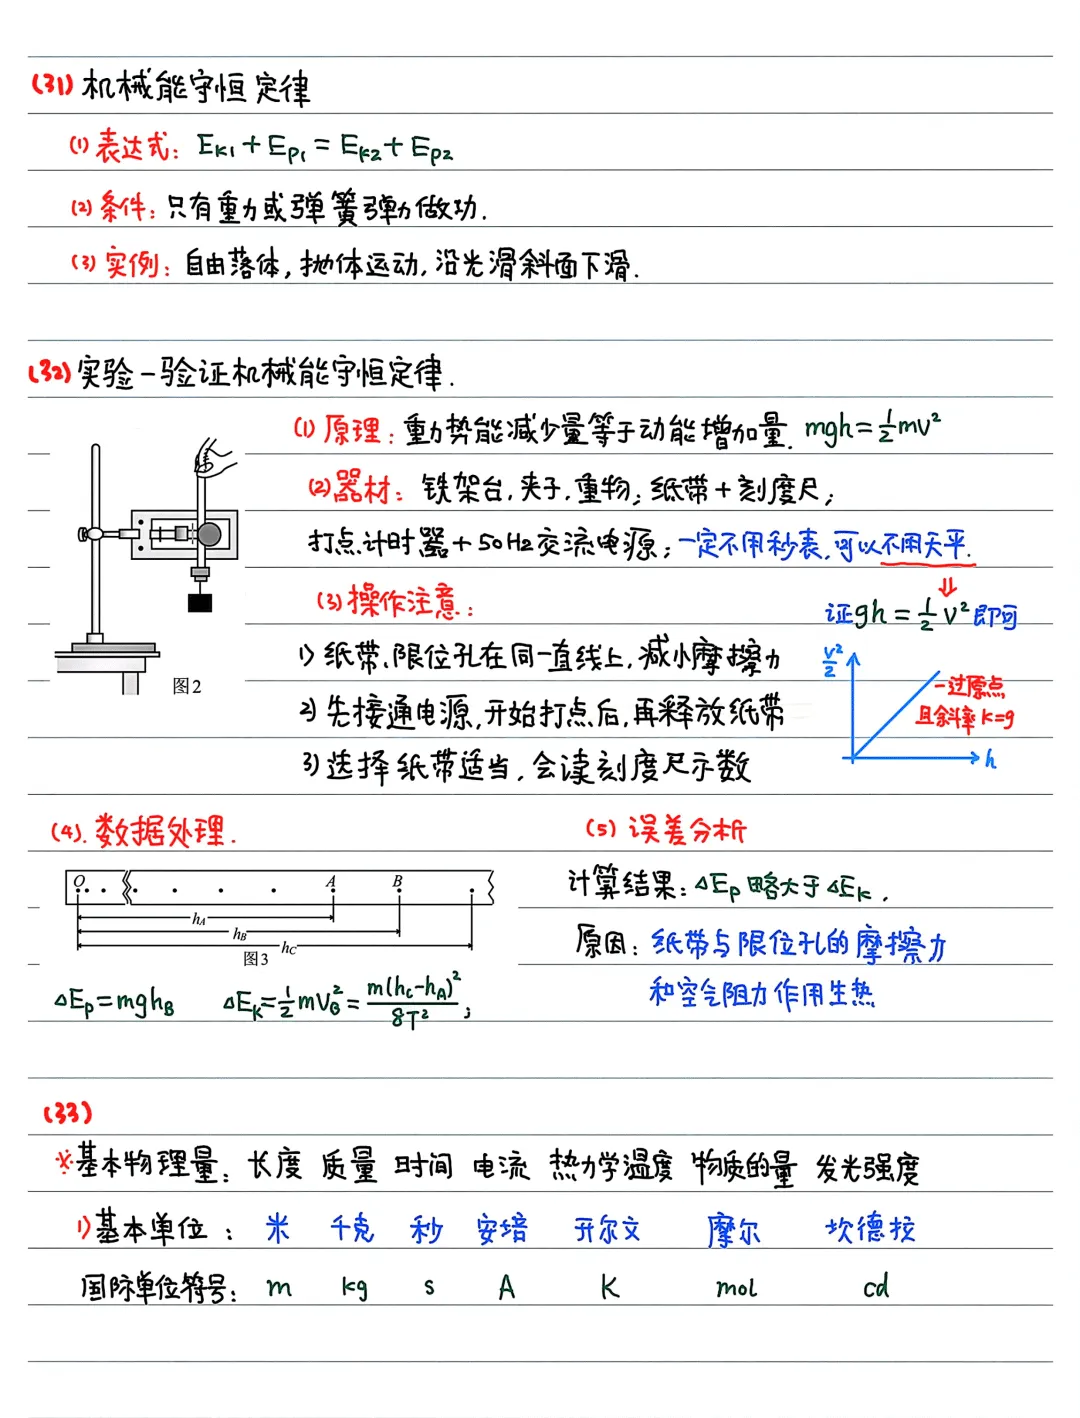 (31) 机械能守恒定律
(1) 表达式: Ek₁+Ep₁=Ek₂+Ep₂
(2) 条件: 只有重力或弹簧弹力做功.
(3) 实例: 自由落体, 抛体运动, 沿光滑斜面下滑.
(32) 实验-验证机械能守恒定律.
(1) 原理: 重力势能减少量等于动能增加量. mgh=½mv²
(2) 器材: 铁架台, 夹子, 重物; 纸带+刻度尺;
打点计时器+50Hz交流电源; 一定不用秒表, 可以不用天平.
⇓
(3) 操作注意:
证gh=½v²即可
1) 纸带、限位孔在同一直线上, 减小摩擦力
2) 先接通电源, 开始打点后, 再释放纸带
3) 选择纸带适当, 会读刻度尺示数
图2
v²/2
一过原点
且斜率k=g
h
(4). 数据处理.
O A B
hA
hB
hC
图3
ΔEp=mghB ΔEk=½mvB²=m(hc-hA)²/8T²;
(5) 误差分析
计算结果: ΔEp略大于ΔEk.
原因: 纸带与限位孔的摩擦力
和空气阻力作用生热
(33)
※基本物理量: 长度 质量 时间 电流 热力学温度 物质的量 发光强度
1) 基本单位: 米 千克 秒 安培 开尔文 摩尔 坎德拉
国际单位符号: m kg s A K mol cd